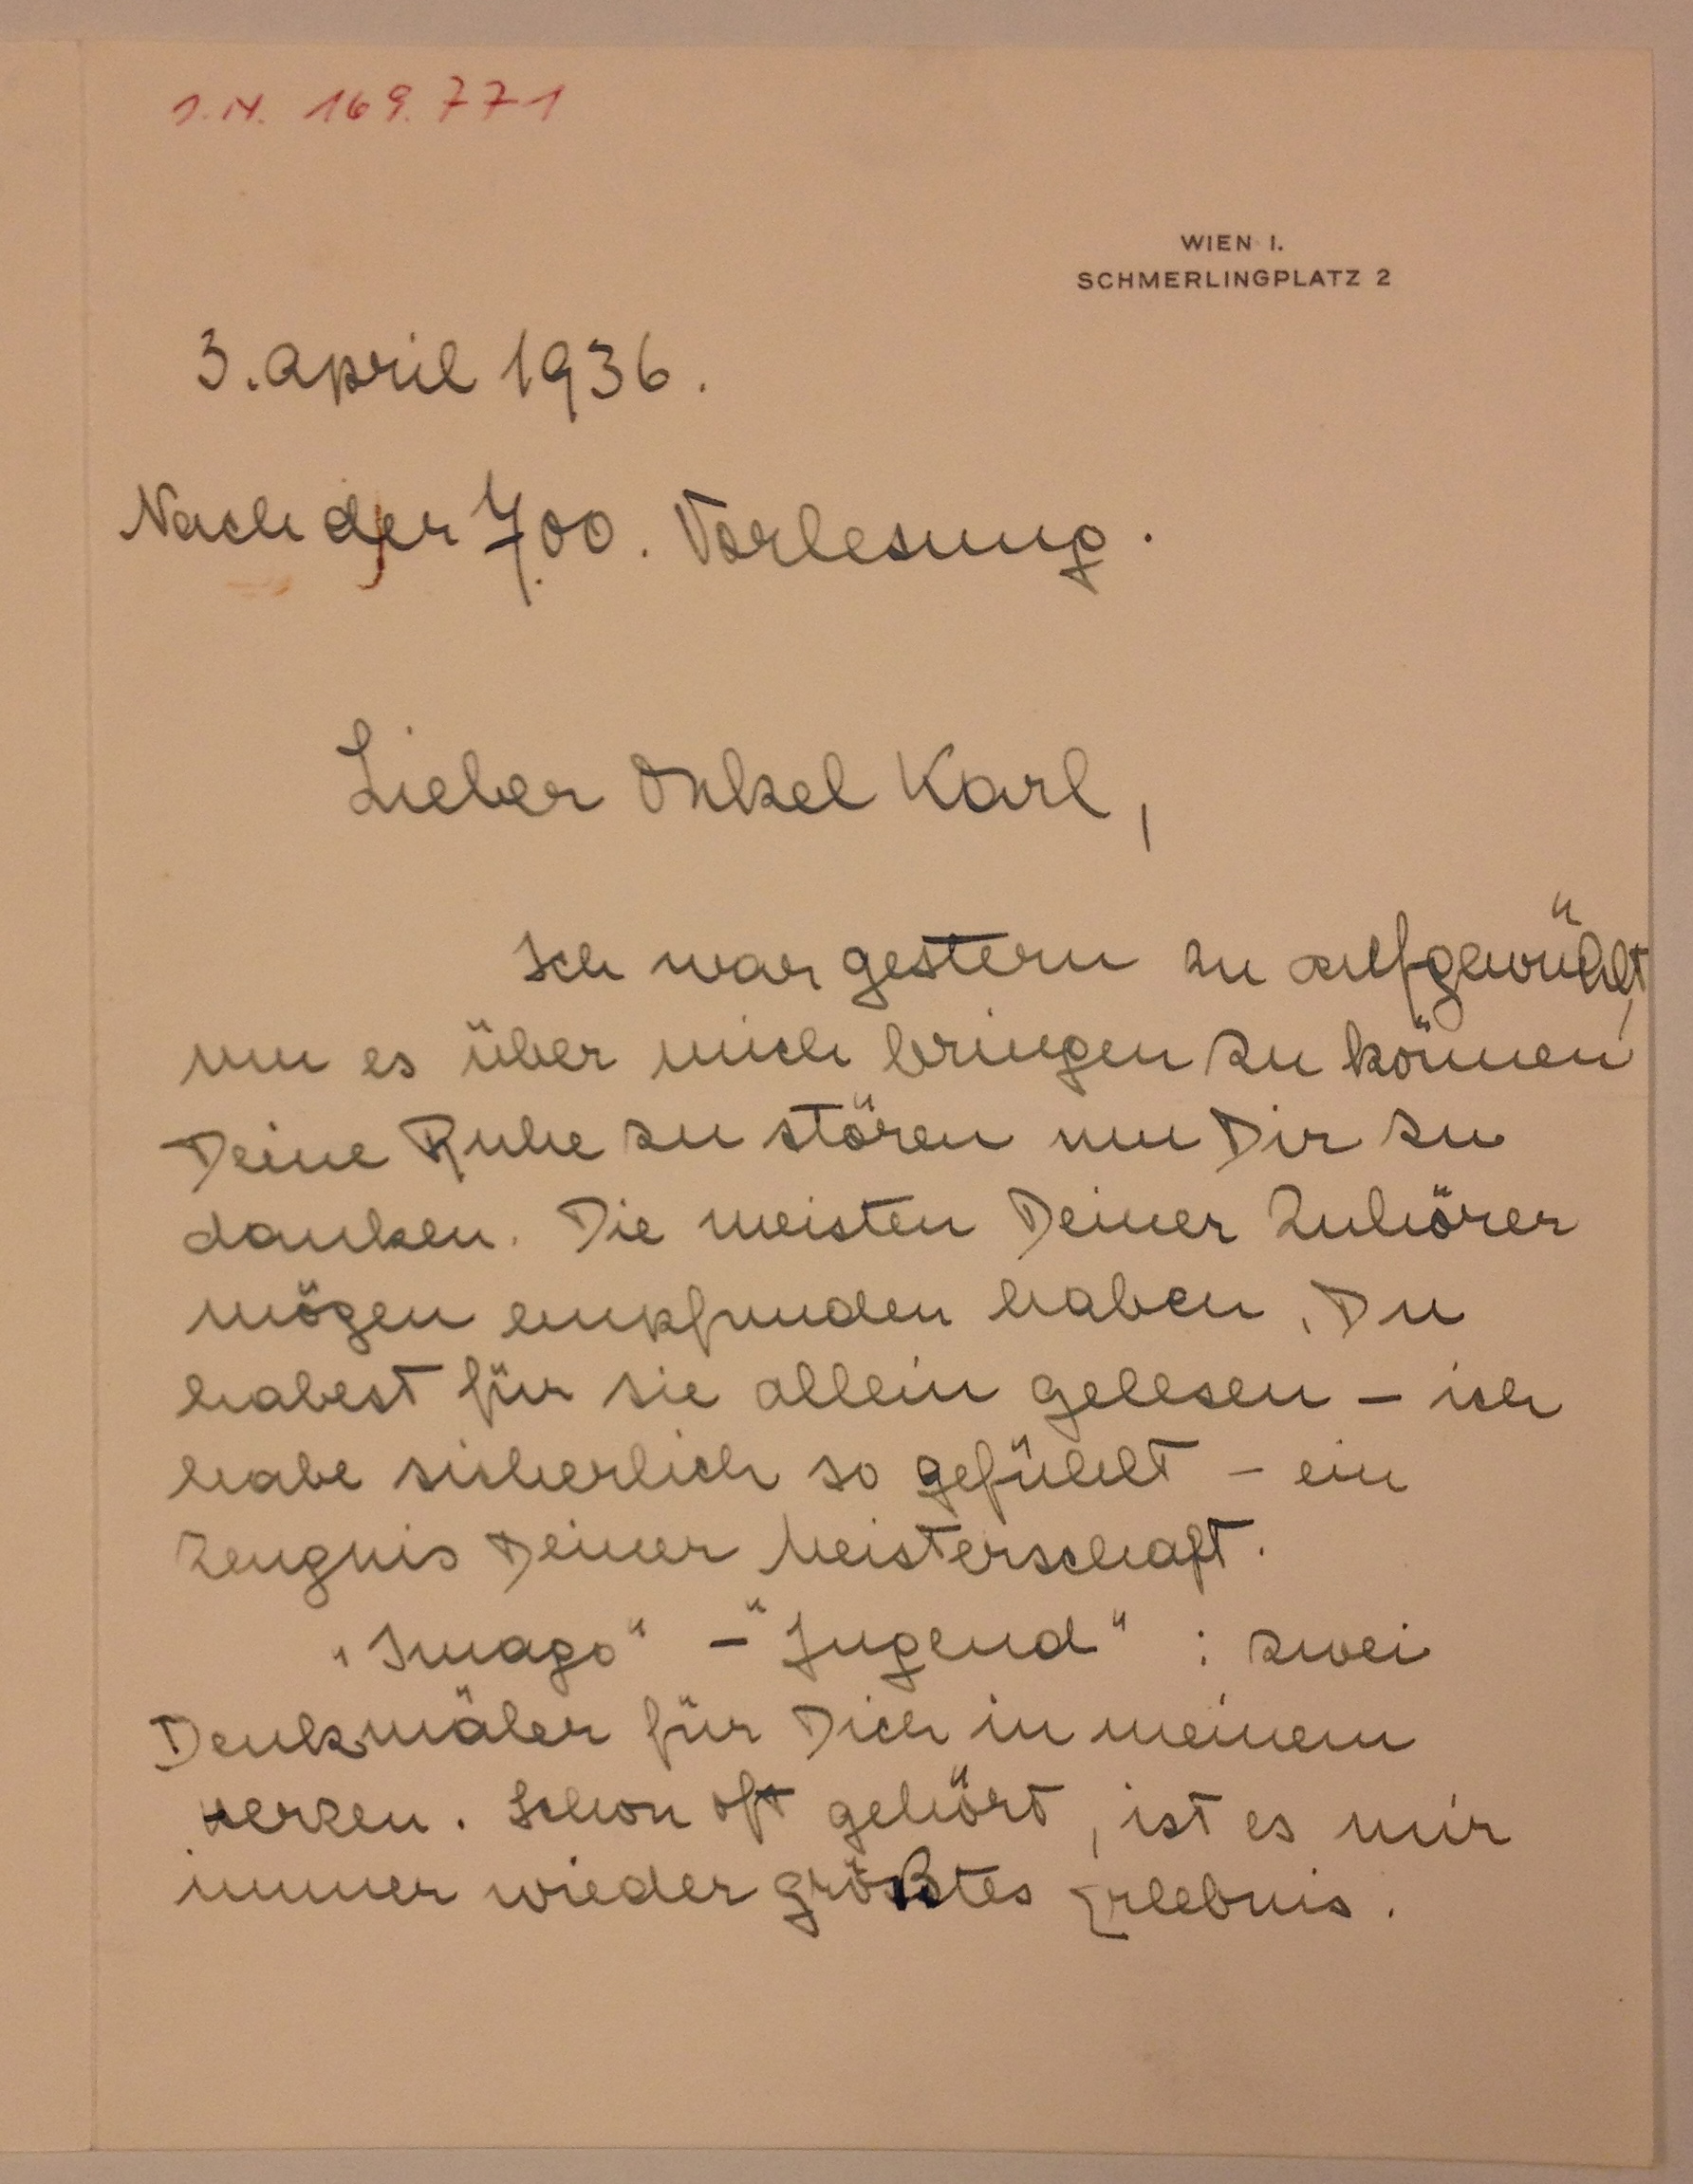 J.N. 169.771
WIEN I.
SCHMERLINGPLATZ 2
3. April 1936.
Nach der 700. Vorlesung.
Lieber Onkel Karl,
Ich war gestern zu aufgewühlt,
um es über mich bringen zu können
Deine Ruhe zu stören um Dir zu
danken. Die meisten Deiner Zuhörer
mögen empfunden haben, Du
habest für sie allein gelesen – ich
habe sicherlich so gefühlt – ein
Zeugnis Deiner Meisterschaft.
„Imago" – "Jugend" : zwei
Denkmäler für Dich in meinem
Herzen. Schon oft gehört, ist es mir
immer wieder größtes Erlebnis.